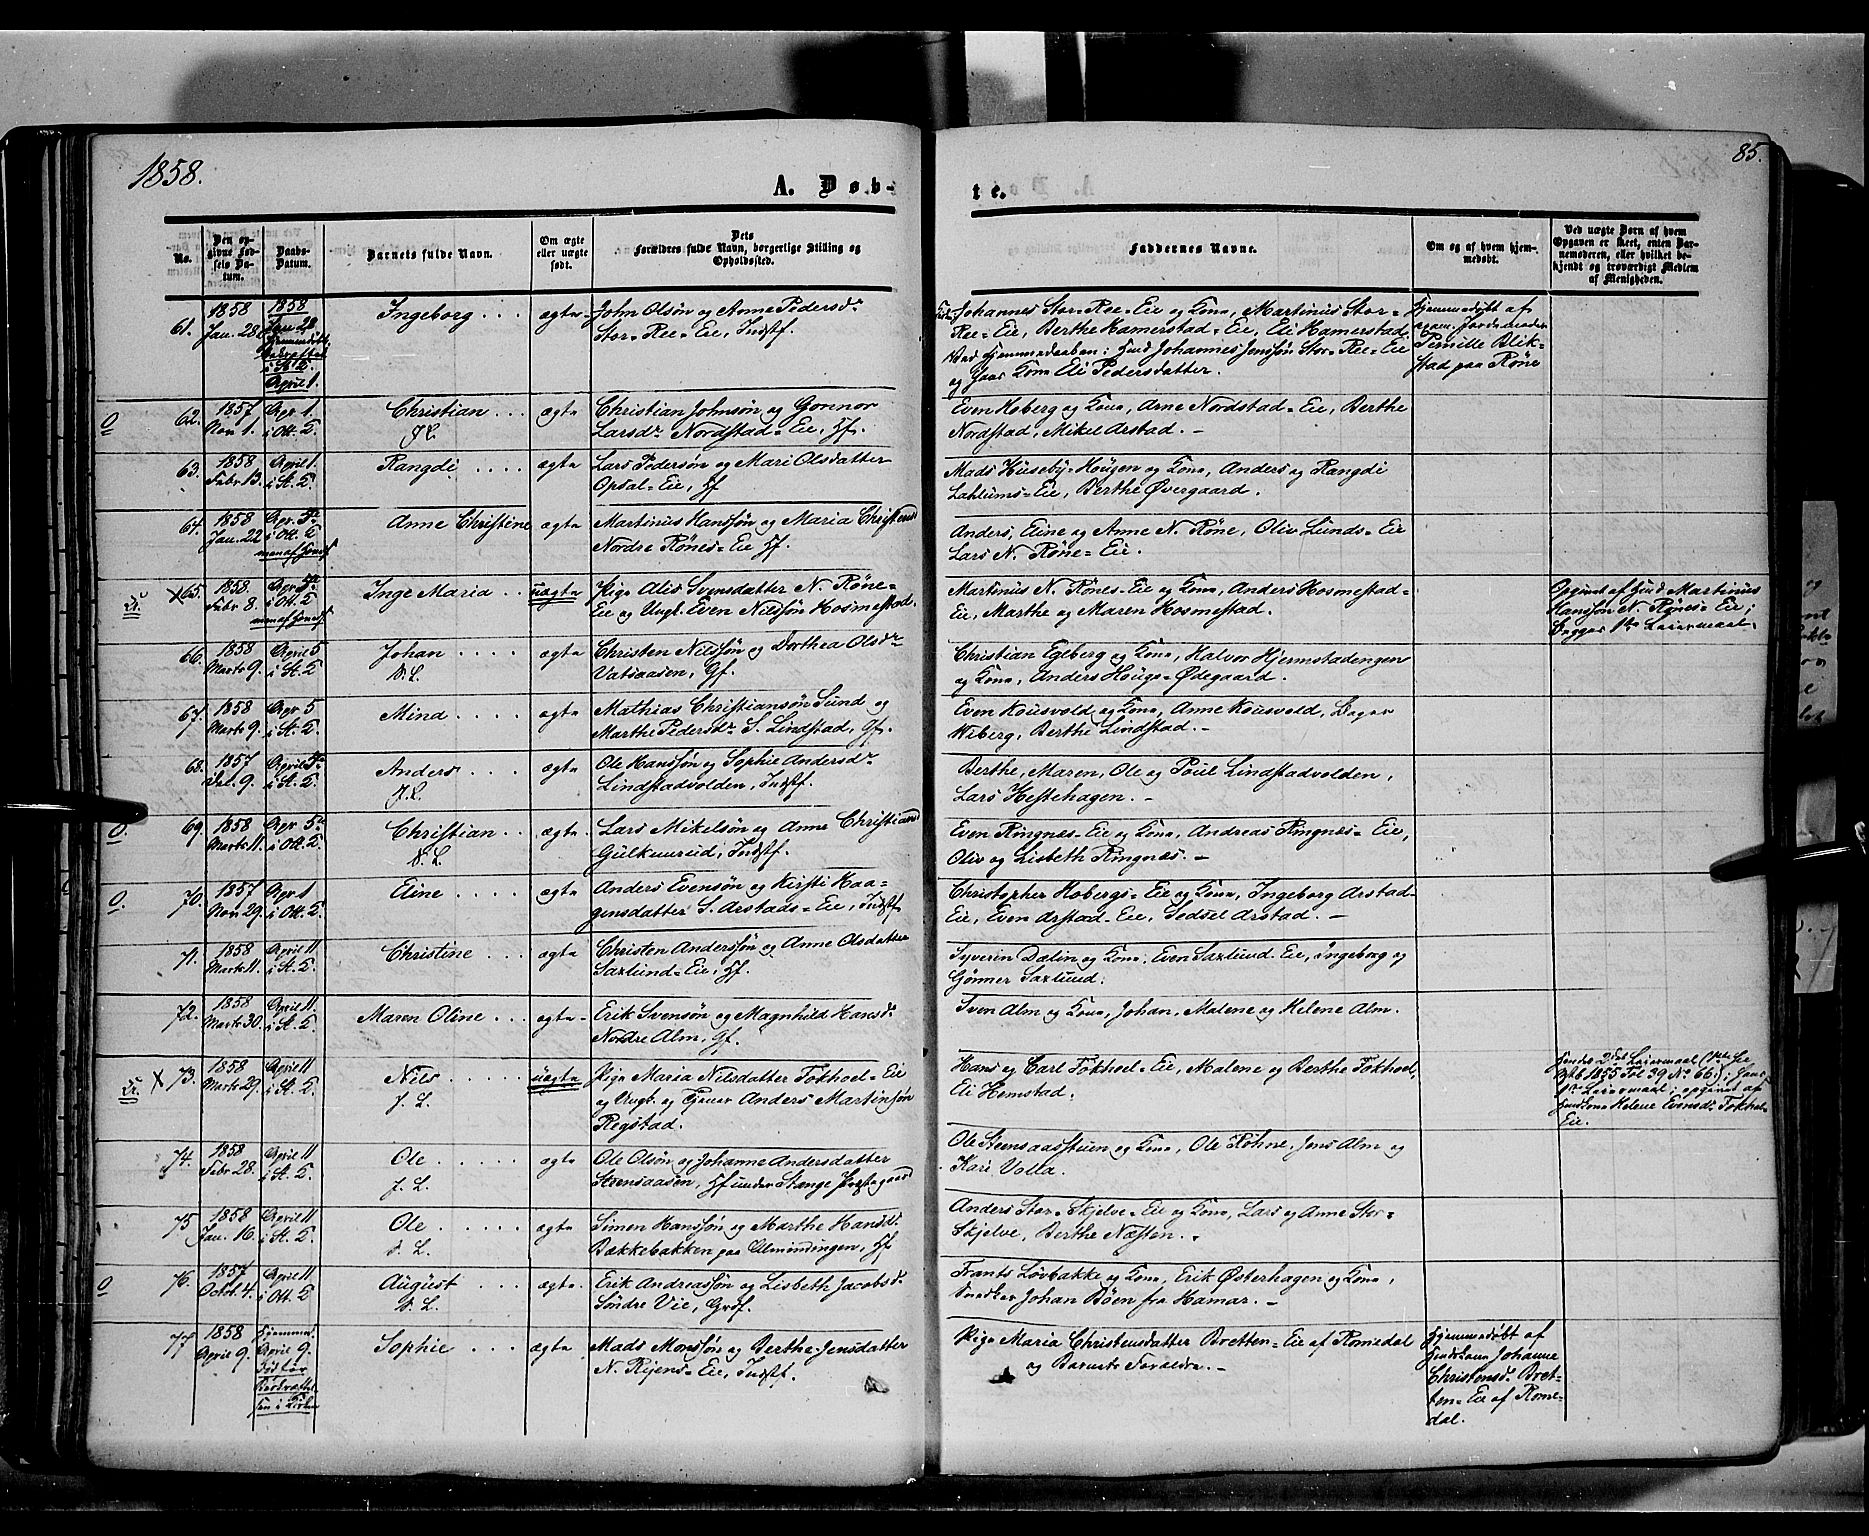 1858.
85.
A. Døb-
te.
No.
Den op-
givne Fød-
sels Da-
tum.
Daabs-
Datum.
Barnets fulde Navn.
Om ægte
eller uægte
født.
Dets
Forældres fulde Navn, borgerlige Stilling og
Opholdssted.
Faddernes Navne.
Om og af hvem hjem-
medøbt.
Ved uægte Børn af hvem
Opgaven er skeet, enten Bar-
nemoderen, eller hvilket be-
kjendt og troværdigt Medlem
af Menigheden.
61.
1858
Jan. 28
1858
Jan. 28
April 1.
Ingeborg
ægte
John Olsøn og Anne Pedersdr
Stor-Ree-Eie, Indstf.
Johannes Stor-Ree-Eie og Kone, Martinus Stor-
Ree-Eie, Berthe Hamerstad-Eie, Eli Hamerstad
Ved Hjemmedaaben: Huusmd Johannes Jenssøn Stor-Ree-Eie
og hans Kone Eli Pedersdatter.
Hjemmedøbt af
exam. Jordemoder
Pernille Blik-
stad paa Røne
0
62.
1857
Nov 1.
Apr 1.
i Ott. K.
Christian
J.L.
ægte
Christian Johnsøn og Gonnor
Larsdr. Nordstad-Eie, Hf.
Even Hoberg og Kone, Arne Nordstad-Eie, Berthe
Nordstad, Mikel Arstad. –
63.
1858
Febr 13.
April 1.
i St. K.
Rangdi
ægte
Lars Pedersøn og Mari Olsdatter
Opsal-Eie, Hf
Mads Huseby-Hougen og Kone, Anders og Rangdi
Lahlums-Eie, Berthe Øvergaard.
64.
1858
Jan. 22
Apr. 5te
i Ott. K
Anne Christine
ægte
Martinus Hanssøn og Maria Christensd
Nordre Rønes-Eie Hf.
Anders, Eline og Anne N. Røne, Oliv Lunds-Eie
Lars N. Røne-Eie.
X 65.
1858
Febr 8.
Apr 5te
i Ott. K
Inge Maria
uægte
Pige Alis Svensdatter N. Røne-
Eie og Ungk. Even Nilssøn Hosmestad.
Martinus N. Rønes-Eie og Kone, Anders Hosmestad-
Eie, Marthe og Maren Hosmestad.
Opgivet af Husmd Martinus
Hanssøn N. Rønes-Eie;
Begges 1ste Leiermaal.
66.
1858
Marts 9.
April 5
i St. K.
Johan
D.L.
ægte
Christen Nilssøn og Dorthea Olsdr
Vatsaasen, Gf.
Christian Egeberg og Kone, Halvor Hjermstadengen
og Kone, Anders Hougs-Ødegaard.
67.
1858
Marts 9.
Apr 5
i St. K.
Mina
ægte
Mathias Christiansøn Sund og
Marthe Pedersdr. S. Lindstad, Gf.
Even Kousvold og Kone, Anne Kousvold, Bager
Wiberg, Berthe Lindstad. –
68.
1857
Dec. 9.
April 5te
i St. K.
Anders
J.L.
ægte
Ole Hanssøn og Sophie Andersdr
Lindstadvolden, Indstf.
Berthe, Maren, Ole og Poul Lindstadvolden,
Lars Hestehagen. –
0.
69.
1858
Marts 11.
Apr 5te
i Ott. K.
Christian
D.L.
ægte
Lars Mikelsøn og Anne Christiansd
Gulkuurud, Indstf.
Even Ringnæs-Eie og Kone, Andreas Ringnæs-Eie,
Oliv og Lisbeth Ringnæs. –
0.
70.
1857
Nov 29.
Apr 1
i Ott. K.
Eline
ægte
Anders Evensøn og Kirsti Haa-
gensdatter S. Arstads-Eie, Indstf.
Christopher Hobergs-Eie og Kone, Ingeborg Arstad-
Eie, Even Arstad-Eie, Sedsel Arstad. –
71.
1858
Marts 11.
April 11
i St. K.
Christine
ægte
Christen Anderssøn og Anne Olsdatter
Saxlund-Eie, Hf.
Syverin Dælin og Kone, Even Saxlund-Eie, Ingeborg og
Gønner Saxlund.
72.
1858
Marts 30.
April 11.
i St. K.
Maren Oline
ægte
Erik Svensøn og Magnhild Hansd.
Nordre Alm, Gf.
Sven Alm og Kone, Johan, Malene og Helene Alm.
X 73.
1858
Marts 29.
April 11
i St. K.
Nils
J.L.
uægte
Pige Maria Nilsdatter Tokhoel-Eie
og Ungk. og Tjener Anders Martinsøn
Regstad.
Hans og Carl Tokhoel-Eie, Malene og Berthe Tokhoel,
Eli Hemstad.
Hendes 2det Leiermaal (1ste see
1855 Fol 39 No 66); hans
1ste Leiermaal; opgivet af
Huuskone Helene Evensdr Tokhol-
Eie.
74.
1858
Febr 28.
April 11
i St. K.
Ole
J.L.
ægte
Ole Olsøn og Johanne Andersdatter
Steensaasen, Hf under Stange Præstegaard
Ole Steensaasstuen og Kone, Ole Røhne, Jens Alm og
Kari Volla.
75
1858
Jan. 16.
April 11
i St. K.
Ole
D.L.
ægte
Simen Hanssøn og Marthe Hansd.
Bækkebakken paa Almindingen, Hf
Anders Stor-Skjelve-Eie og Kone, Lars og Anne Stor-
Skjelve, Berthe Næsten.
0
76.
1857
Octob. 4.
April 11
i Ott. K
August
D.L.
ægte
Erik Andreassøn og Lisbeth Jacobsd.
Søndre Vie, Grdf.
Frants Løvbakke og Kone, Erik Østerhagen og Kone,
Snedker Johan Bøen fra Hamar. –
77.
1858
April 9.
Hjemmed.
April 9.
Sophie
ægte
Mads Monssøn og Berthe Jensdatter
N. Rijens-Eie, Indstf.
Pige Maria Christensdatter Bretten-Eie af Romedal
og Barnets Forældre. –
Hjemmedøbt af
Huuskone Johanne
Christensd. Bret-
ten-Eie af Rome-
dal.